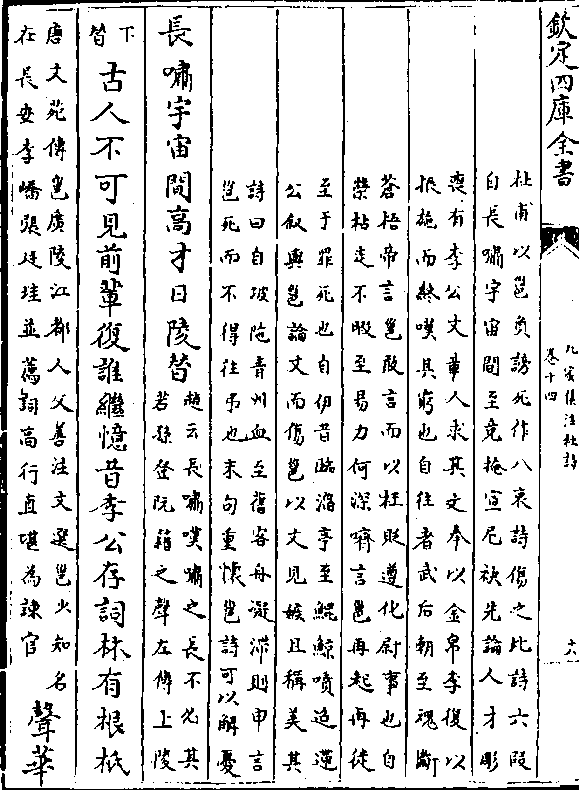 欽定四庫全書
九家集注杜詩
卷十四
十六
杜甫以邕負謗死作八哀詩傷之此詩六段
自長嘯宇宙間至竟掩宣尼袂先論人才彫
喪有李公文章人求其文奉以金帛李復以
振施而終嘆其窮也自往者武后朝至魂斷
蒼梧帝言邕敢言而以枉貶遵化尉事也自
榮枯走不暇至易力何深嚌言邕再起再徒
至于罪死也自伊昔臨淄亭至鯤鯨噴迢遰
公叙與邕論文而傷邕以文見嫉且稱美其
詩曰自坡陁青州血至舊客舟凝滯則申言
邕死而不得往弔也末句重懷邕詩可以解憂
長嘯宇宙間髙才日陵替
趙云長嘯嘆嘯之長不必其
若孫登阮籍之聲左傳上陵
下
替
古人不可見前輩復誰繼憶昔李公存詞林有根柢
唐文苑傳邕廣陵江都人父善注文選邕少知名
在長安李嶠張廷珪並薦詞高行直堪為諫官
聲華